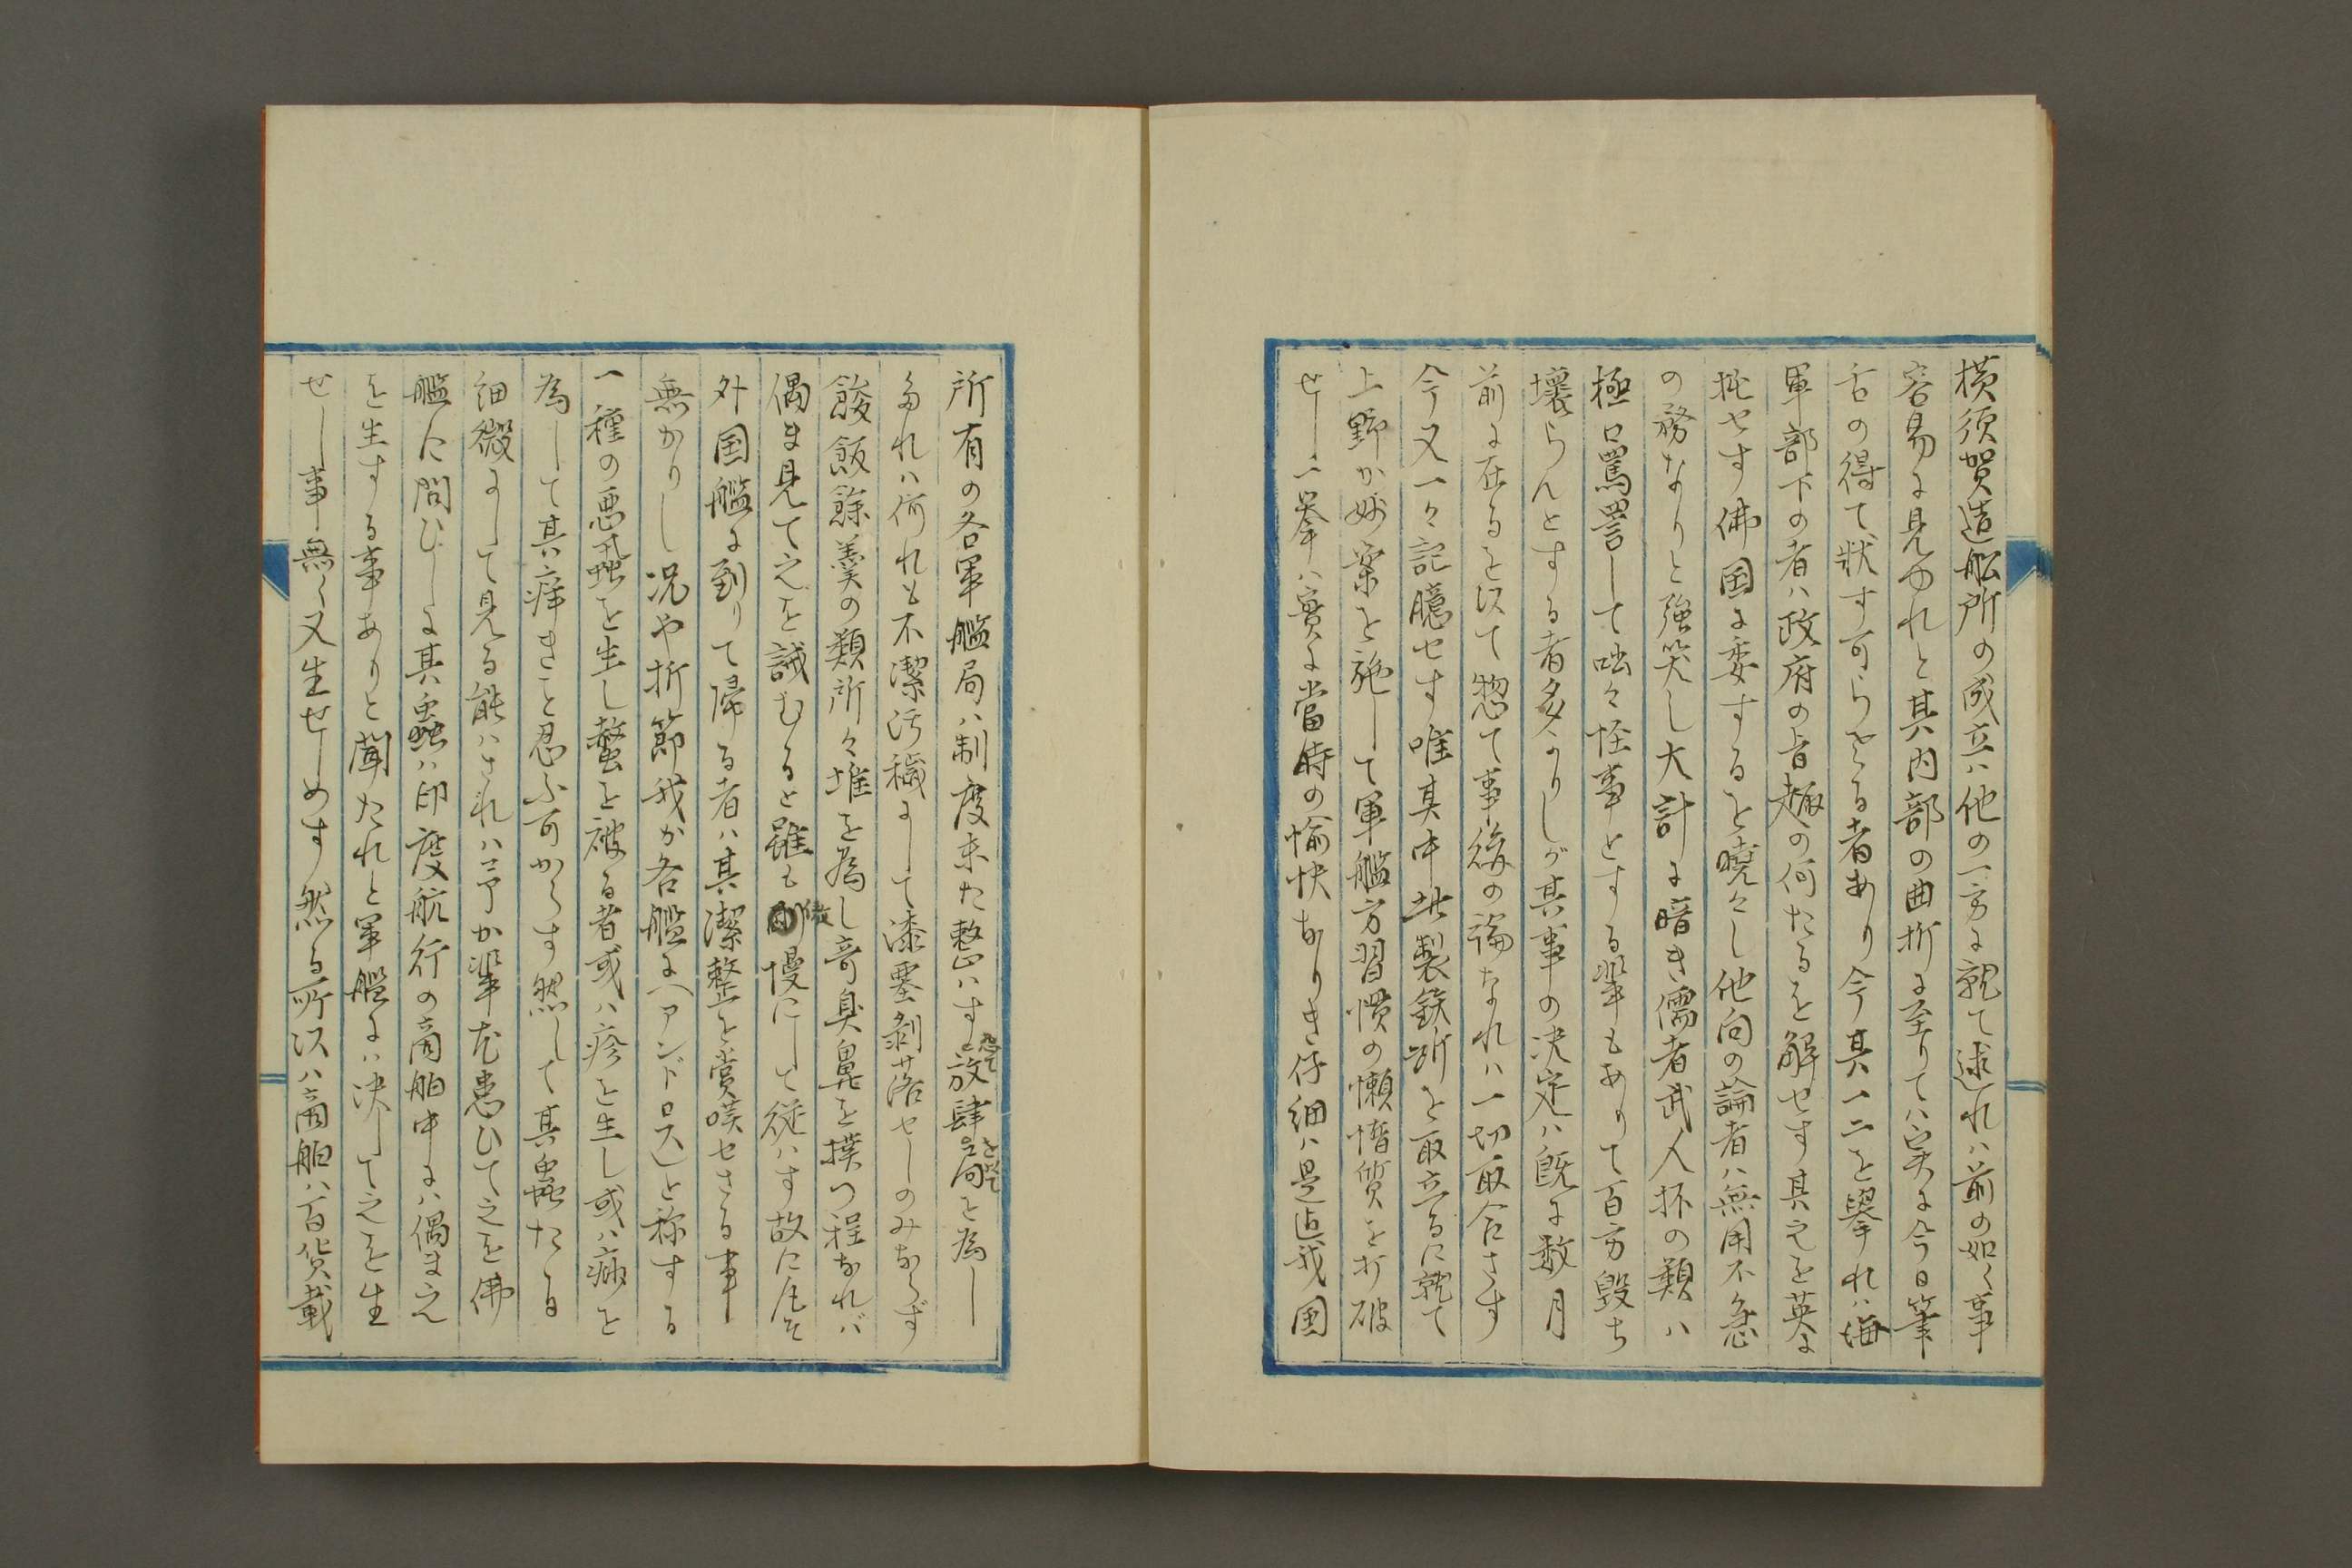 横須賀造船所の成立ハ他の一方に就て述れハ前の如く事
容易に見ゆれと其内部の曲折に至りてハ実に今日筆
舌の得て状す可らさる者あり今其一二を擧れハ海
軍部下の者ハ政府の旨趣の何たるを解せす其之を英に
托せす佛国に委するを曉々し他向の論者ハ無用不急
の務なりと強笑し大計に暗き儒者武人抔の類ハ
極口罵詈して咄々怪事とする輩もありて百方毀ち
壞らんとする者多かりしが其事の决定ハ既に数月
前に在るを以て惣て事後の論なれハ一切取合さす
今又一々記臆せす唯其中此製鉄所を取立るに就て
上野か妙案を施して軍艦方習慣の懶惰質を打破
せし一挙ハ實に當時の愉快なりき仔細ハ是迠我国
所有の各軍艦局ハ制度未た整ハす放肆を為し
なれハ何れも不潔汚穢にして漆塗剥落せしのみならず
餕飯餘羹の類所々堆を為し奇臭鼻を撲つ程なれバ
偶ま見て之を誡むると雖も傲慢にして従ハす故に凡そ
外国艦に到りて帰る者ハ其潔整を賞嘆せさる事
無かりし况や折節我か各艦に（アンドロス）と称する
一種の悪虱を生し螫を被る者或ハ疹を生し或ハ痂を
為して其痒きこと忍ふ可からす然して其蟲たる
細微にして見る能ハされハ予か輩尤患ひて之を佛
艦に問ひしに其蟲ハ印度航行の商舶中にハ偶ま之
を生する事ありと聞たれと軍艦にハ决して之を生
せし事無く又生せしめす然る所以ハ商舶ハ百貨載